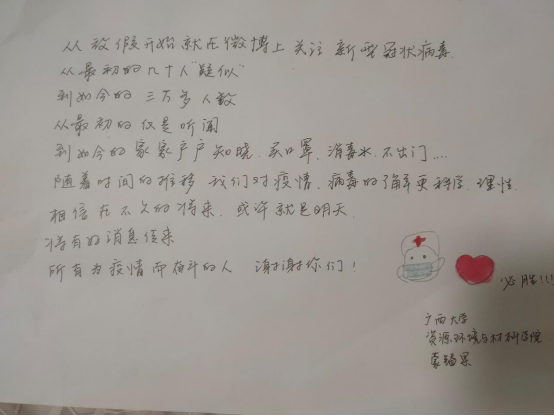 从放假开始就在微博上关注新型冠状病毒
从最初的几十人"疑似"
到如今的三万多人数
从最初的仅是听闻
到如今的家家户户知晓.买口罩.消毒水.不出门....
随着时间的推移 我们对疫情.病毒的了解更科学.理性.
相信在不久的将来.或许就是明天.
将有好消息传来
所有为疫情而奋斗的人 谢谢你们!
必胜!!!
广西大学
资源环境与材料学院